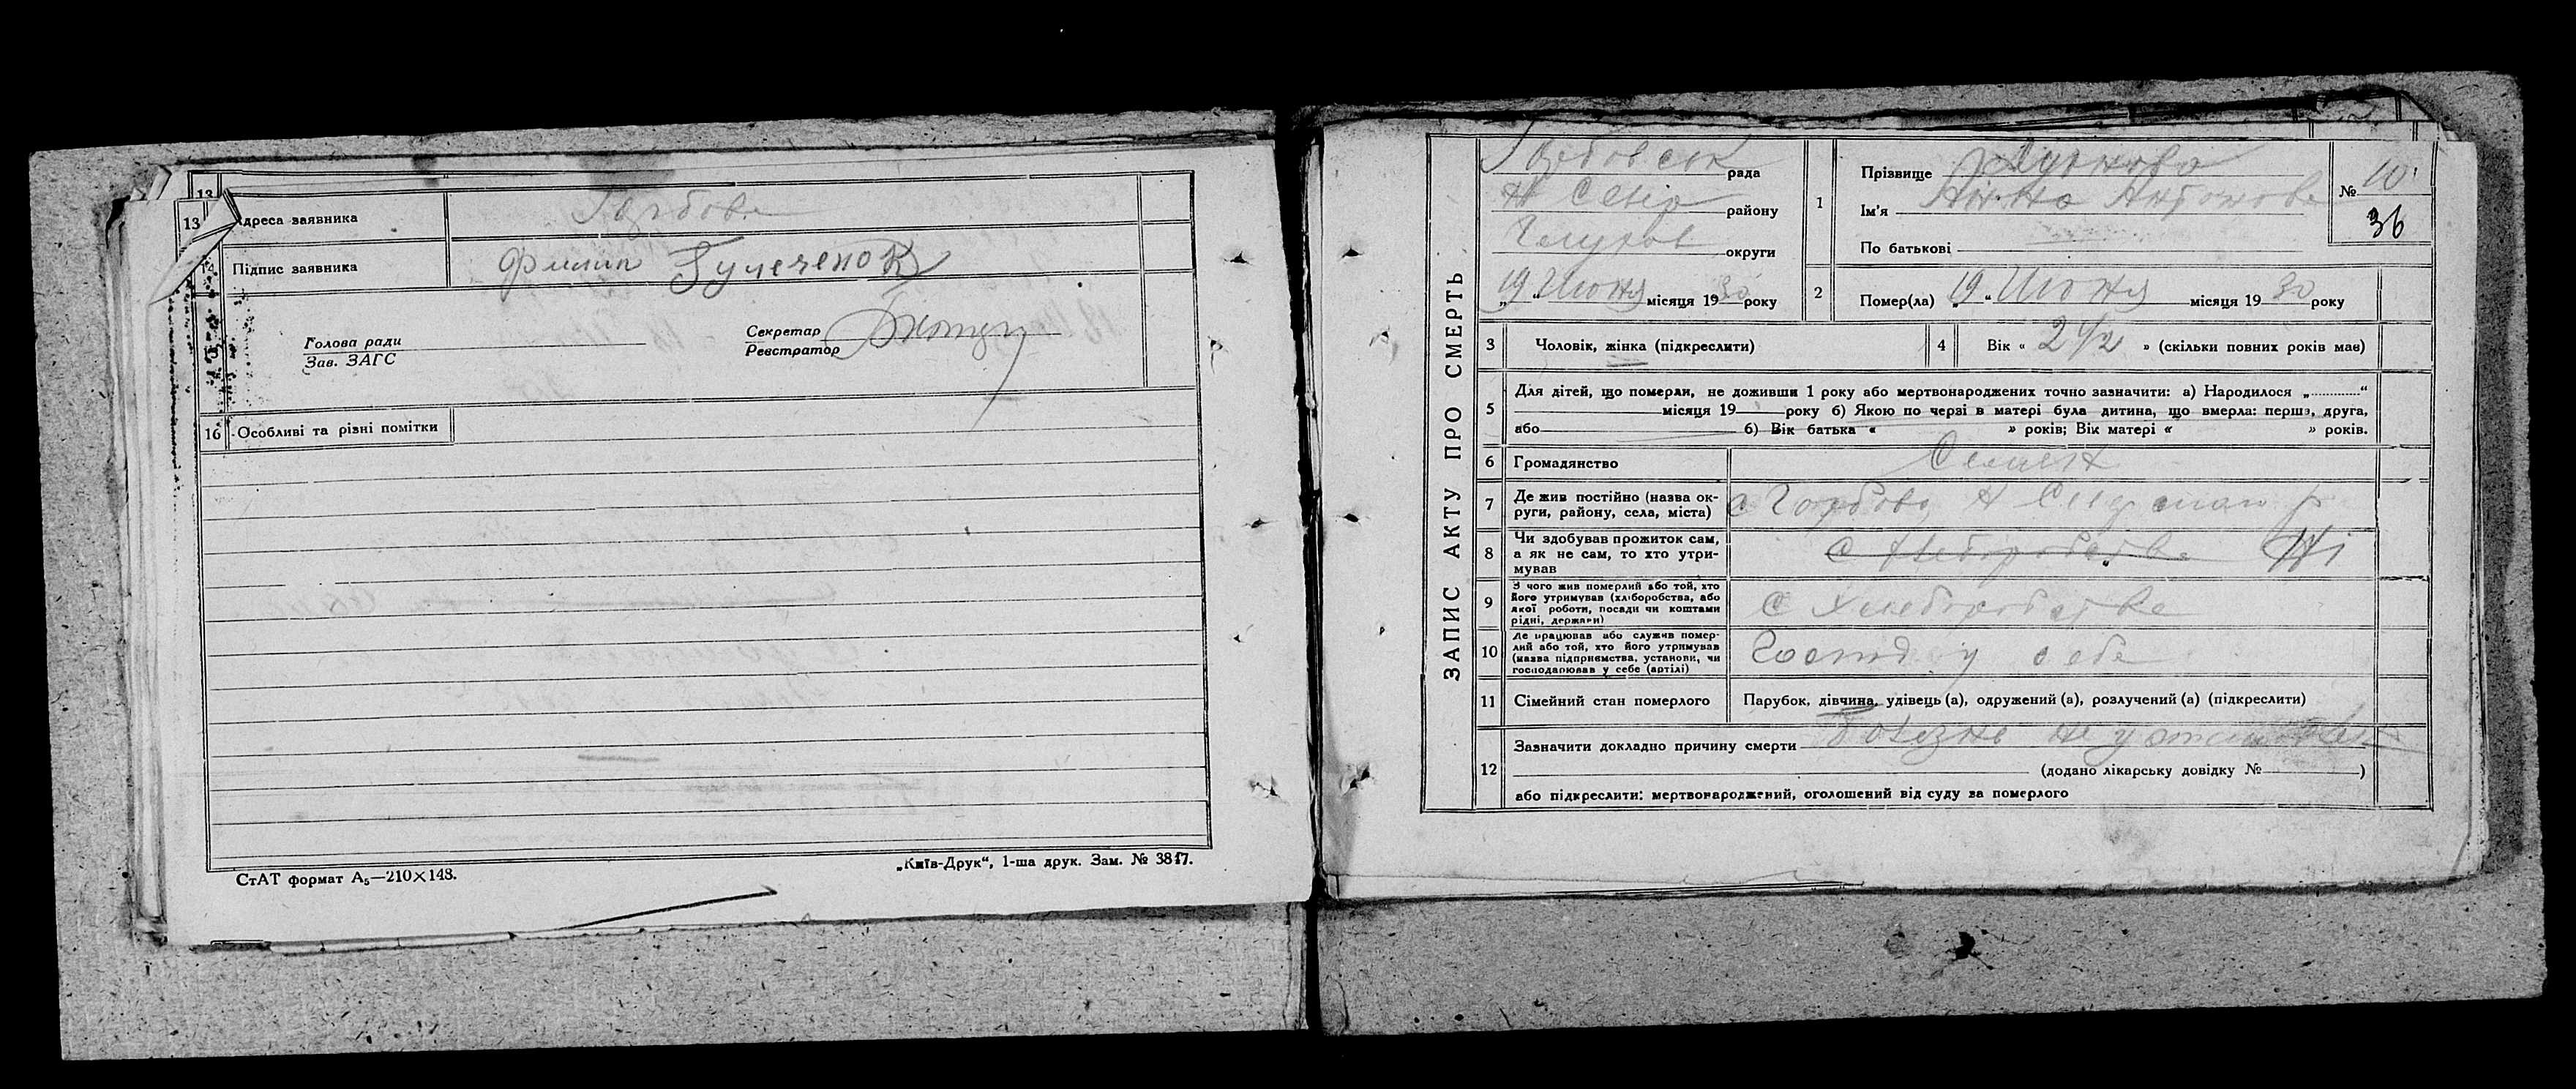 13
13 Адреса заявника Горбово
14 Підпис заявника Филип Гулеченок
Голова ради
Зав. ЗАГС
Секретар
Реєстратор
16 Особливі та різні помітки
СтАТ формат А₅—210×148.
„Київ-Друк“, 1-ша друк. Зам. № 3817.
ЗАПИС АКТУ ПРО СМЕРТЬ
Горбовськ рада
Н Сівір району
Глухов округи
„19“ Июня місяця 1930 року
1 Прізвище
Ім'я Анна Антонова
По батькові
№ 10
36
2 Помер(ла) „19“ Июня місяця 1930 року
3 Чоловік, жінка (підкреслити)
4 Вік « 2 1/2 » (скільки повних років має)
5 Для дітей, що померли, не доживши 1 року або мертвонароджених точно зазначити: а) Народилося „ “
місяця 19 року б) Якою по черзі в матері була дитина, що вмерла: перша, друга,
або б) Вік батька « » років; Вік матері « » років.
6 Громадянство
7 Де жив постійно (назва округи, району, села, міста) С Горбово Н
8 Чи здобував прожиток сам, а як не сам, то хто утримував Ні
9 З чого жив померлий або той, хто його утримував (хліборобства, або якої роботи, посади чи коштами рідні, держави) С Хлеборобства
10 Де працював або служив померлий або той, хто його утримував (назва підприємства, установи, чи господарював у себе (артілі) Господ у себе
11 Сімейний стан померлого Парубок, дівчина, удівець (а), одружений (а), розлучений (а) (підкреслити)
12 Зазначити докладно причину смерти болезнь не установлен
(додано лікарську довідку № )
або підкреслити: мертвонароджений, оголошений від суду за померлого